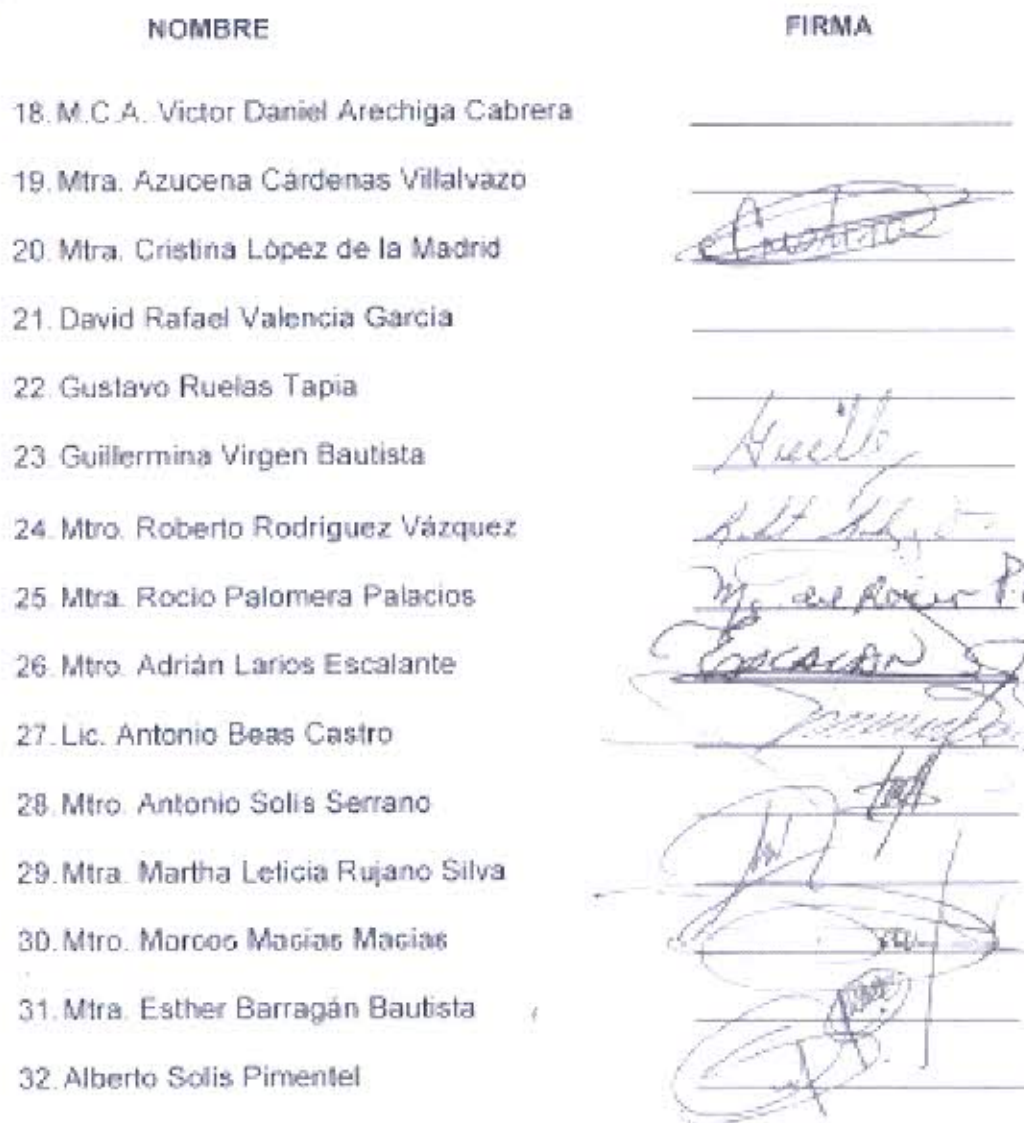 NOMBRE FIRMA
18. M.C.A. Victor Daniel Arechiga Cabrera
19. Mtra. Azucena Cárdenas Villalvazo
20. Mtra. Cristina López de la Madrid
21. David Rafael Valencia García
22. Gustavo Ruelas Tapia
23. Guillermina Virgen Bautista
24. Mtro. Roberto Rodríguez Vázquez
25. Mtra. Rocio Palomera Palacios
26. Mtro. Adrián Larios Escalante
27. Lic. Antonio Beas Castro
28. Mtro. Antonio Solis Serrano
29. Mtra. Martha Leticia Rujano Silva
30. Mtro. Marcos Macias Macias
31. Mtra. Esther Barragán Bautista
32. Alberto Solis Pimentel